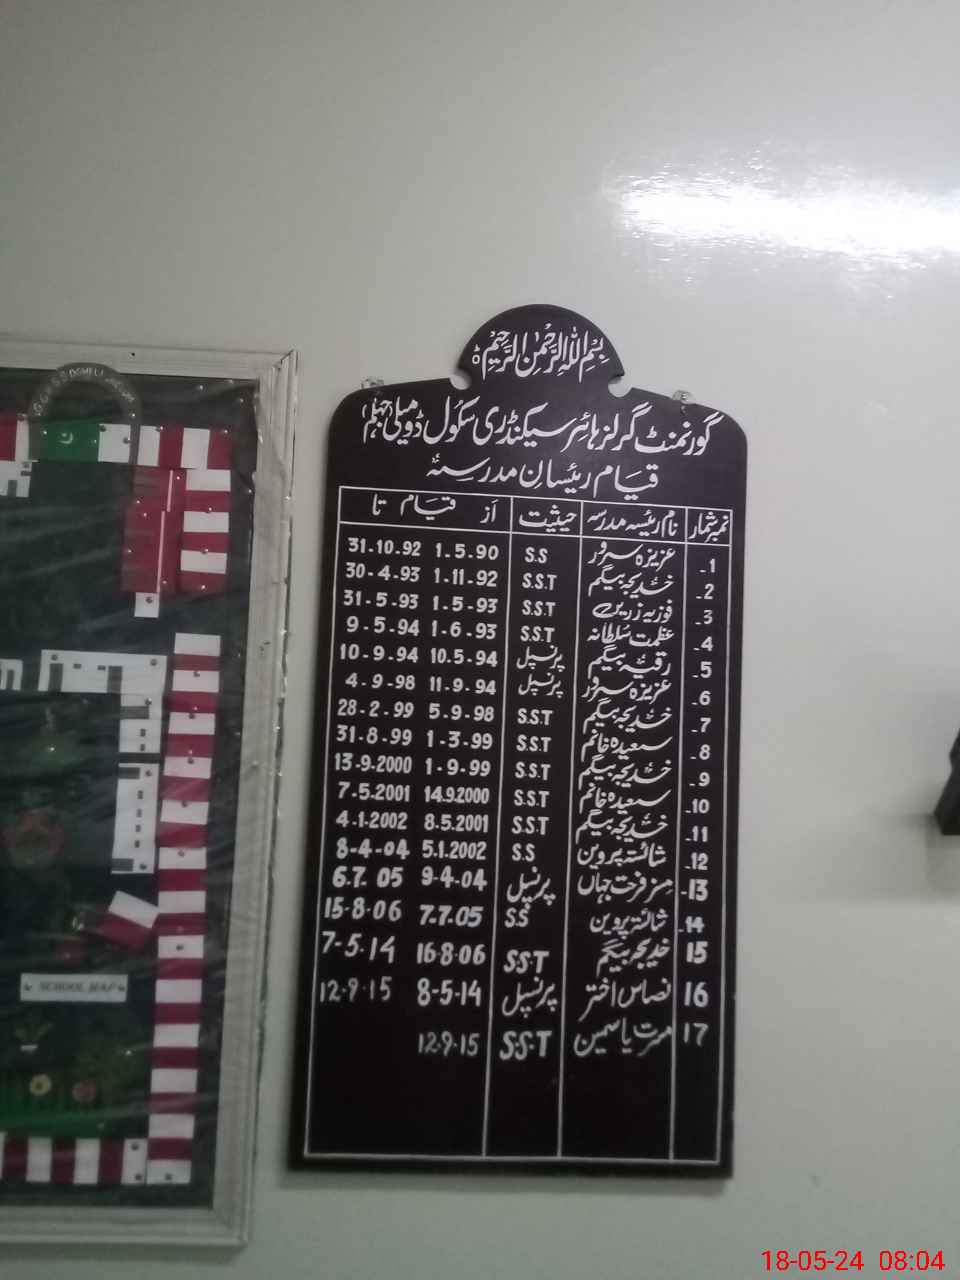 بِسْمِ اللهِ الرَّحْمٰنِ الرَّحِيْمِ ○
گورنمنٹ گرلز ہائر سیکنڈری سکول ڈومیلی (جہلم)
قیام رئیسانِ مدرسہ
نمبر شمار نام رئیسہ مدرسہ حیثیت از قیام تا
1- عزیزہ سرور S.S 1.5.90 31-10-92
2- خدیجہ بیگم S.S.T 1-11-92 30-4-93
3- فوزیہ زرین S.S.T 1-5-93 31-5-93
4- عظمت سلطانہ S.S.T 1-6-93 9-5-94
5- رقیہ بیگم پرنسپل 10.5-94 10-9-94
6- عزیزہ سرور پرنسپل 11.9-94 4-9-98
7- خدیجہ بیگم S.S.T 5-9-98 28-2-99
8- سعیدہ خانم S.S.T 1-3-99 31-8-99
9- خدیجہ بیگم S.S.T 1-9-99 13-9-2000
10- سعیدہ خانم S.S.T 14.9.2000 7-5.2001
11- خدیجہ بیگم S.S.T 8.5.2001 4-1-2002
12- شائستہ پروین S.S 5.1.2002 8-4-04
13- مسز فرحت جہاں پرنسپل 9-4-04 6.7. 05
14- شائستہ پروین S.S 7.7.05 15-8-06
15 خدیجہ بیگم S.S.T 16-8-06 7-5-14
16 اختر پرنسپل 8-5-14 12-9-15
17 مسرت یاسمین S.S.T 12.9.15
SCHOOL MAP
18-05-24 08:04